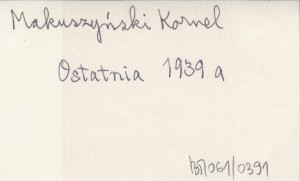 Makuszyński Kornel
Ostatnia 1939 a
BJ/061/0391